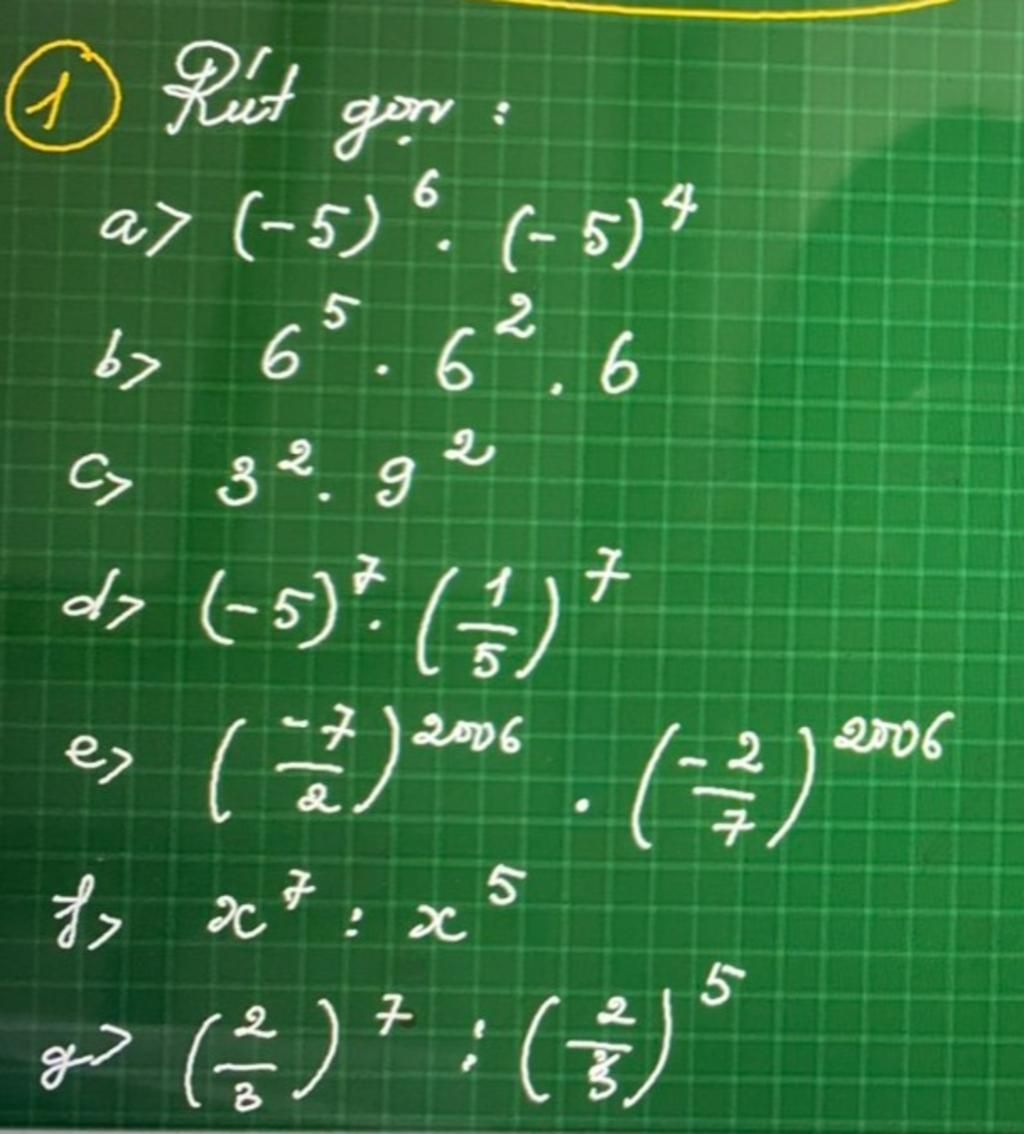 1 Rút gọn :
a> (-5)^6 . (-5)^4
b> 6^5 . 6^2 . 6
c> 3^2 . 9^2
d> (-5)^7 . (1/5)^7
e> (-7/2)^2006 . (-2/7)^2006
f> x^7 : x^5
g> (2/3)^7 : (2/3)^5